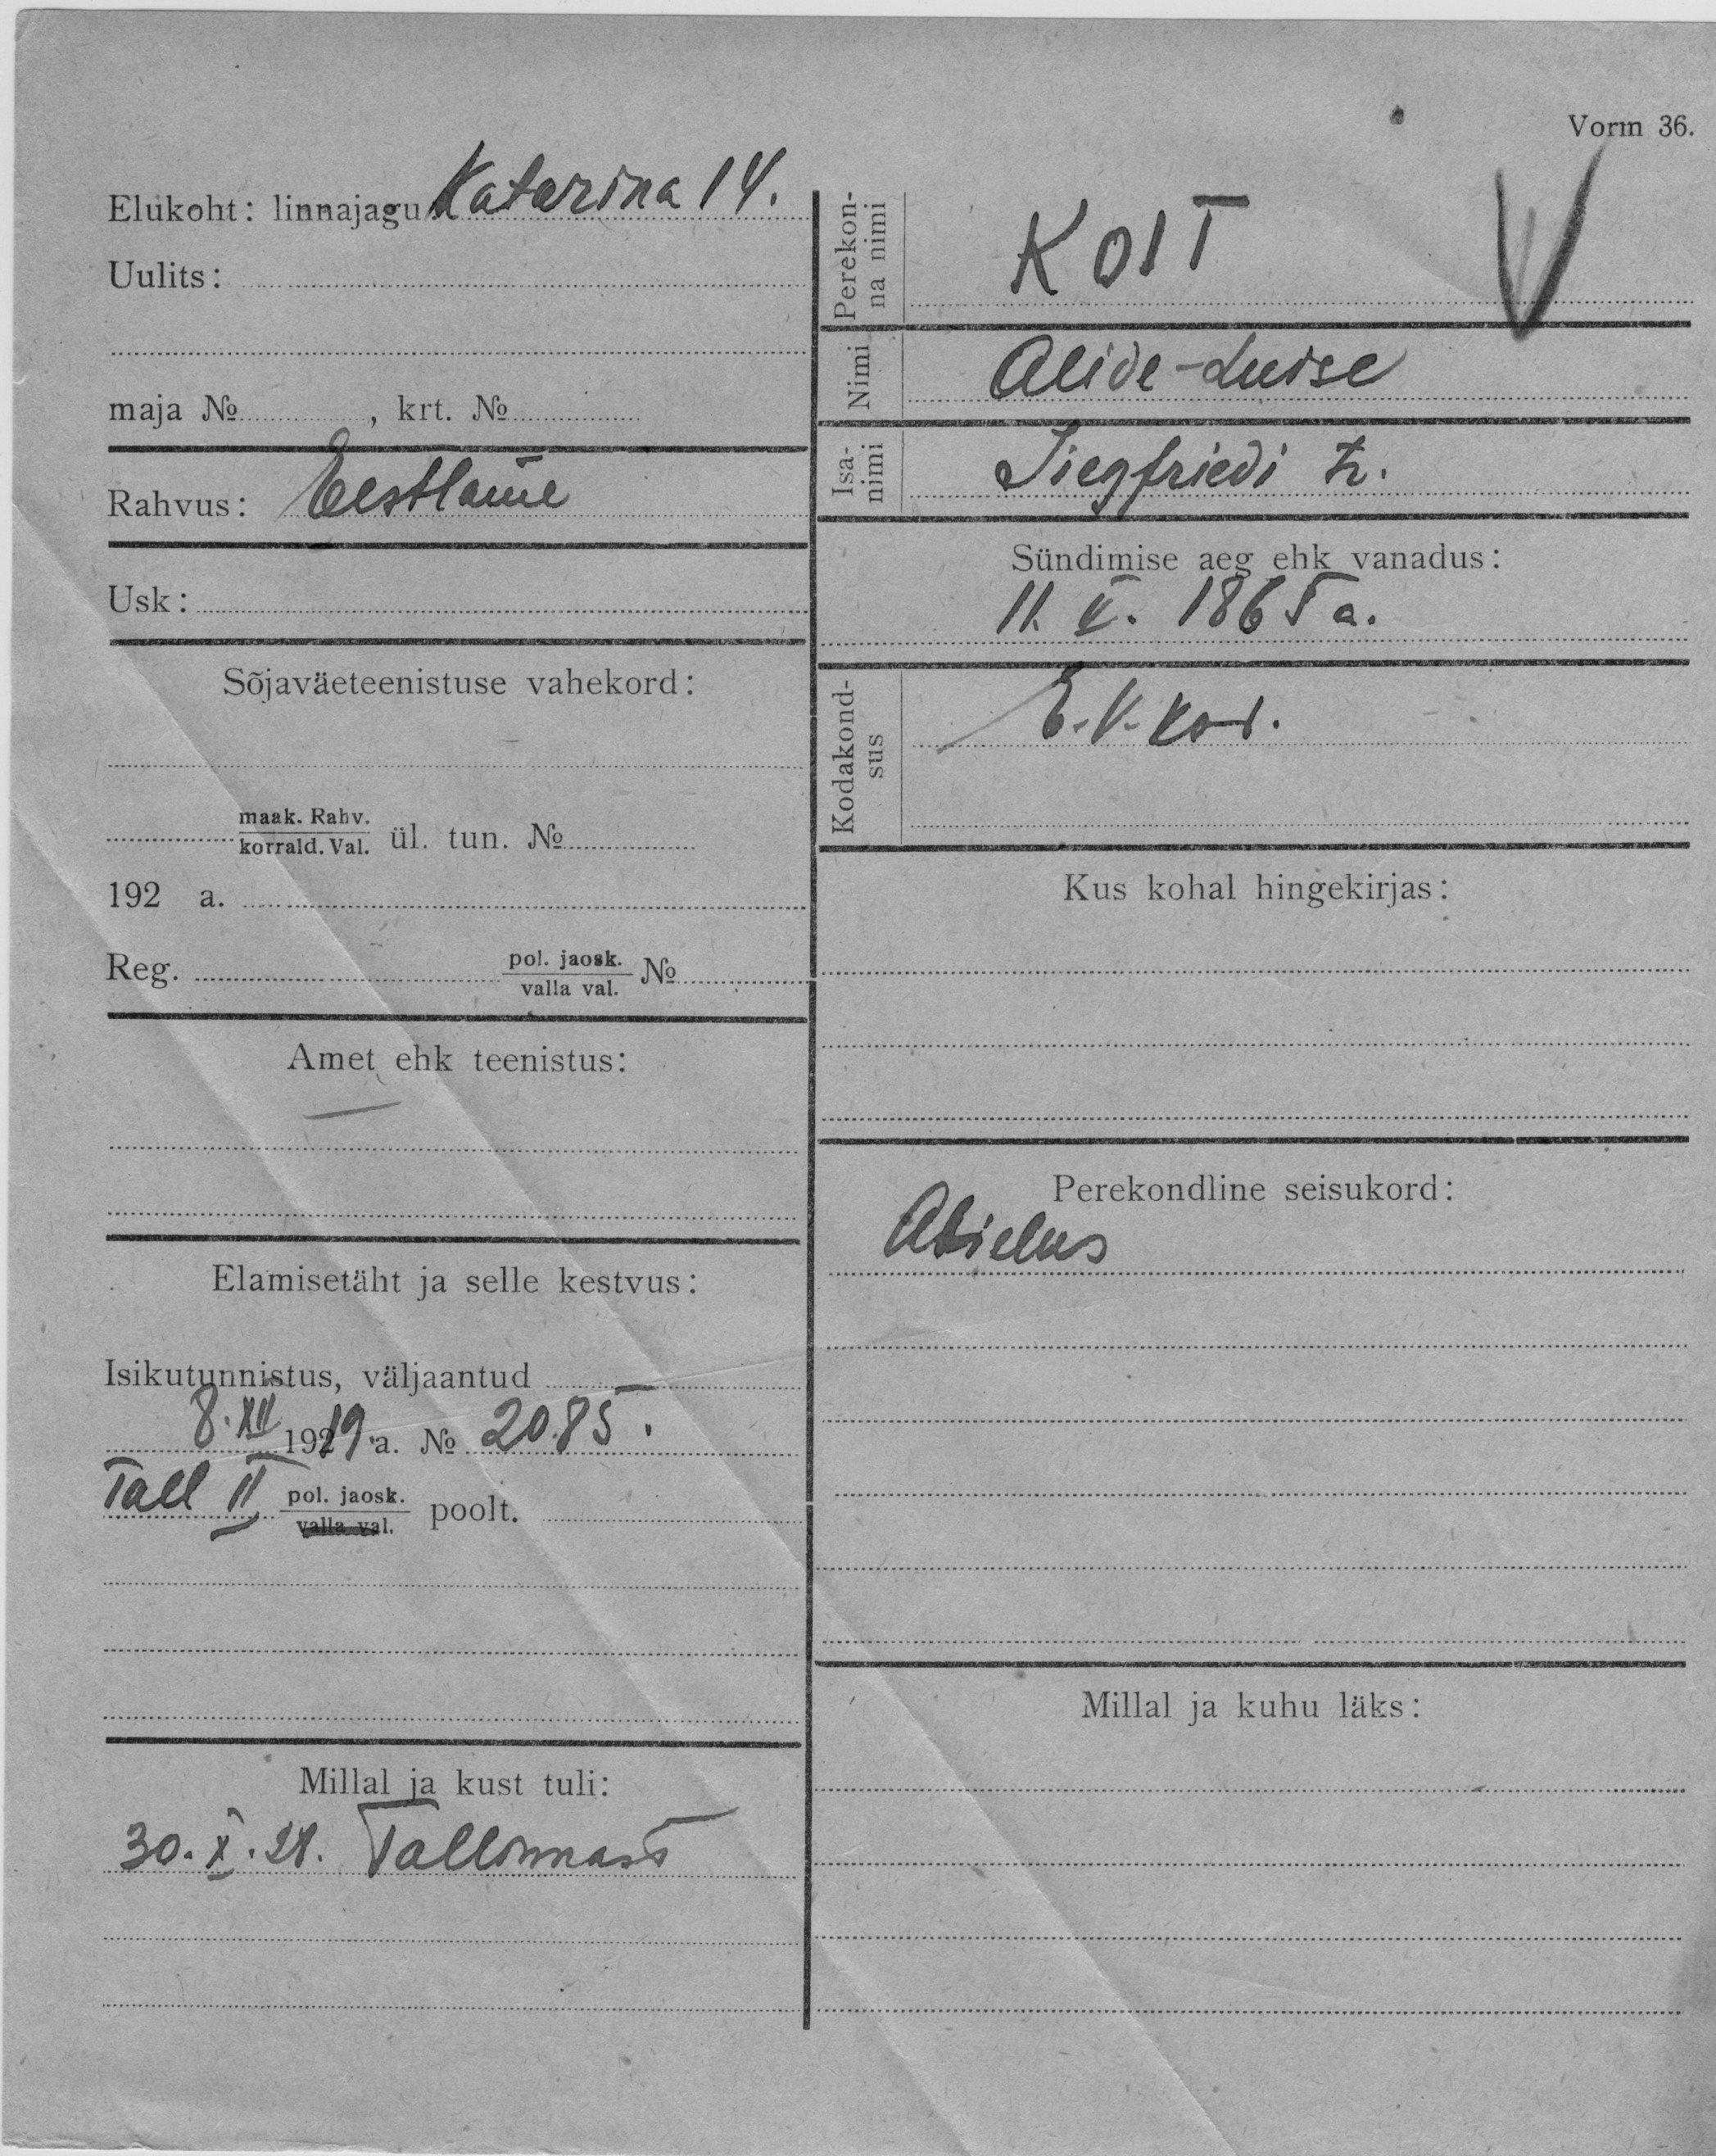 Vorm 36.
Elukoht: linnajagu Katarina 14.
Uulits:
maja №, krt. №
Rahvus: Eestlaine
Usk:
Sõjaväeteenistuse vahekord:
maak. Rahv.
korrald. Val. ül. tun. №
192 a.
Reg. pol. jaosk. №
valla val.
Amet ehk teenistus:
—
Elamisetäht ja selle kestvus:
Isikutunnistus, väljaantud
8. XII 1919 a. № 2085.
Tall II pol. jaosk. poolt.
valla val.
Millal ja kust tuli:
30. X. 21. Tallinnast
Perekon-
na nimi
KOIT
Nimi
Alide-Luise
Isa-
nimi
Siegfriedi t.
Sündimise aeg ehk vanadus:
11. V. 1865 a.
Kodakond-
sus
E.V. kod.
Kus kohal hingekirjas:
Perekondline seisukord:
Abielus
Millal ja kuhu läks: